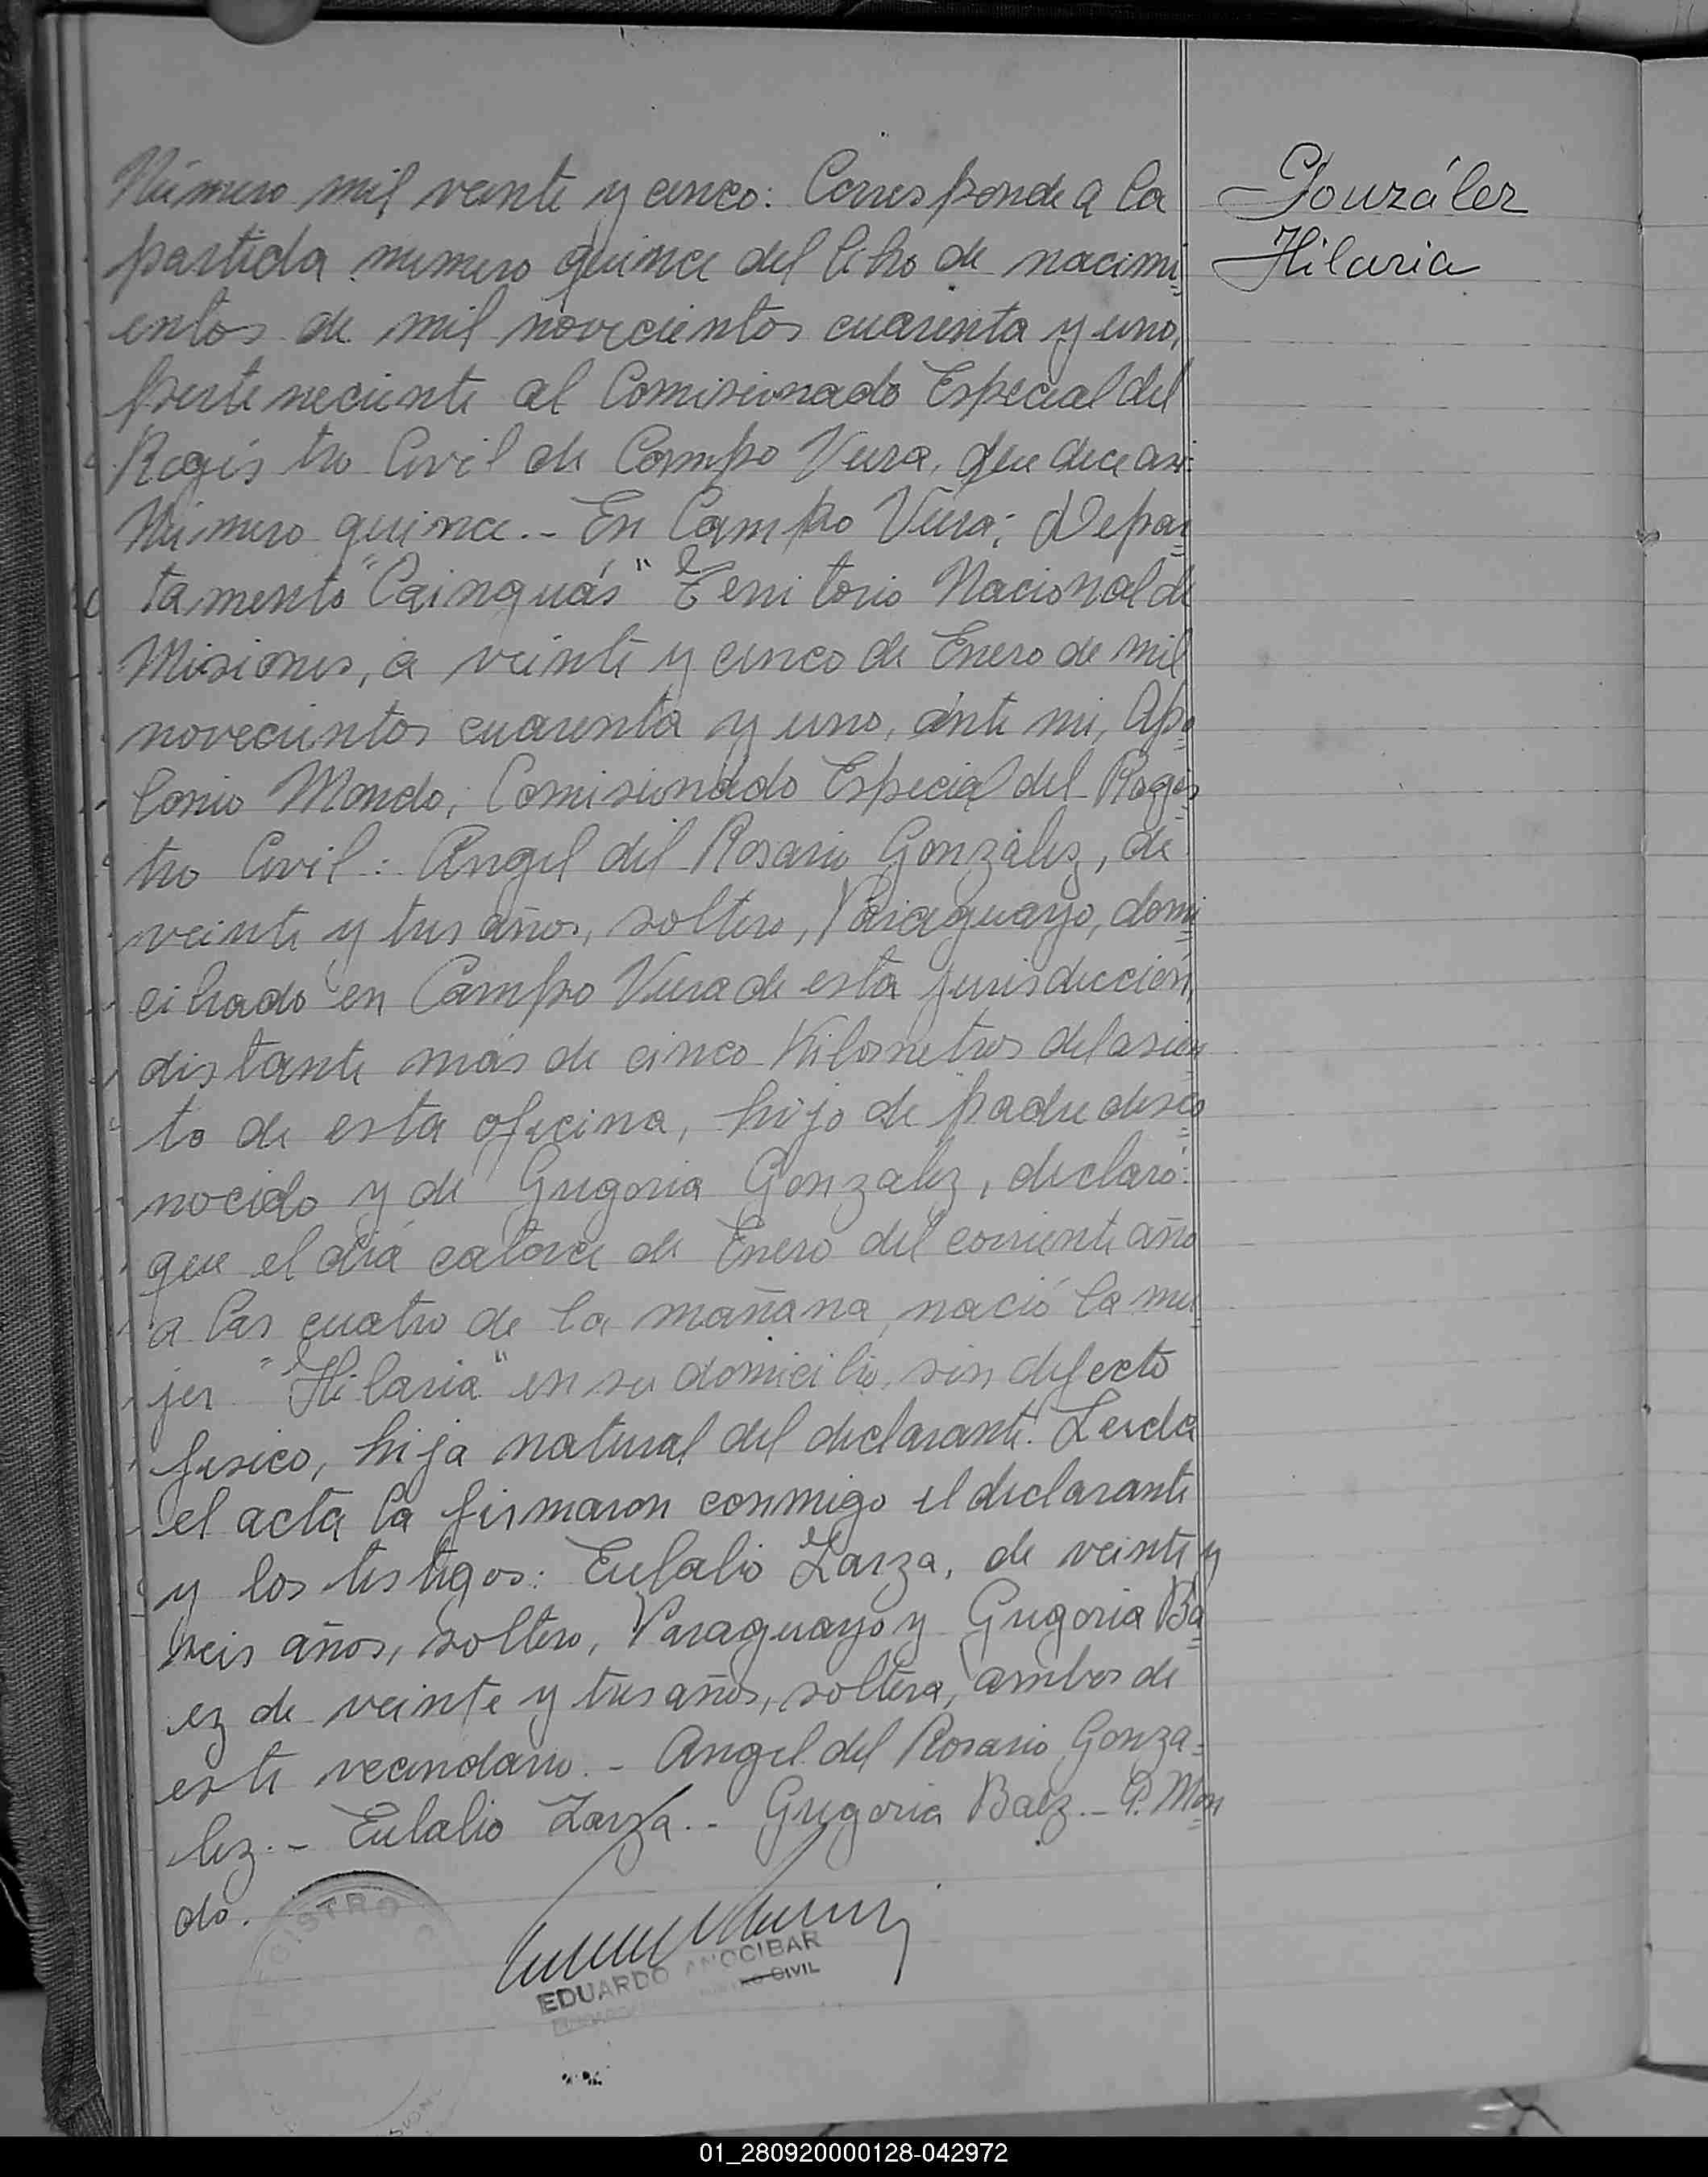 Número mil veinte y cinco: Corresponde a la
partida numero quince del libro de nacimi=
entos de mil novecientos cuarenta y uno,
perteneciente al Comisionado Especial del
Regis tro Civil de Campo Viera, que dice asi:
Número quince.- En Campo Viera; Depar=
tamento "Cainguás" Territorio Nacional de
Misiones, a veinte y cinco de Enero de mil
novecientos cuarenta y uno, ante mi, Apo=
lonio Mondo, Comisionado Especial del Regis=
tro Civil: Angel del Rosario González, de
veinte y tres años, soltero, Paraguayo, domi=
ciliado en Campo Viera de esta jurisdicción,
distante más de cinco Kilometros del asien=
to de esta oficina, hijo de padre desco=
nocido y de Gregoria Gonzalez, declaró:
que el día catorce de Enero del corriente año
a las cuatro de la mañana, nació la mu=
jer "Hilaria" en su domicilio, sin defecto
fisico, hija natural del declarante. Leida
el acta la firmaron conmigo el declarante
y los testigos: Eulalio Zarza, de veinte y
seis años, soltero, Paraguayo y Gregoria Ba=
ez de veinte y tres años, soltera, ambos de
este vecindario.- Angel del Rosario Gonza=
lez.- Eulalio Zarza.- Gregoria Baez.- A. Mon=
do.
González
Hilaria
EDUARDO ANOCIBAR
CIVIL
01_280920000128-042972